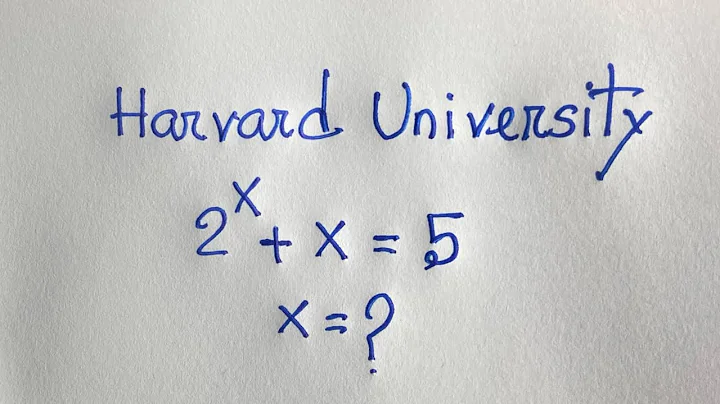 Harvard University
2^x + x = 5
x = ?